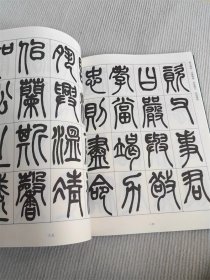 資父事君
曰嚴與敬
孝當竭力
忠則盡命
夙興溫凊
似蘭斯馨
如松之盛